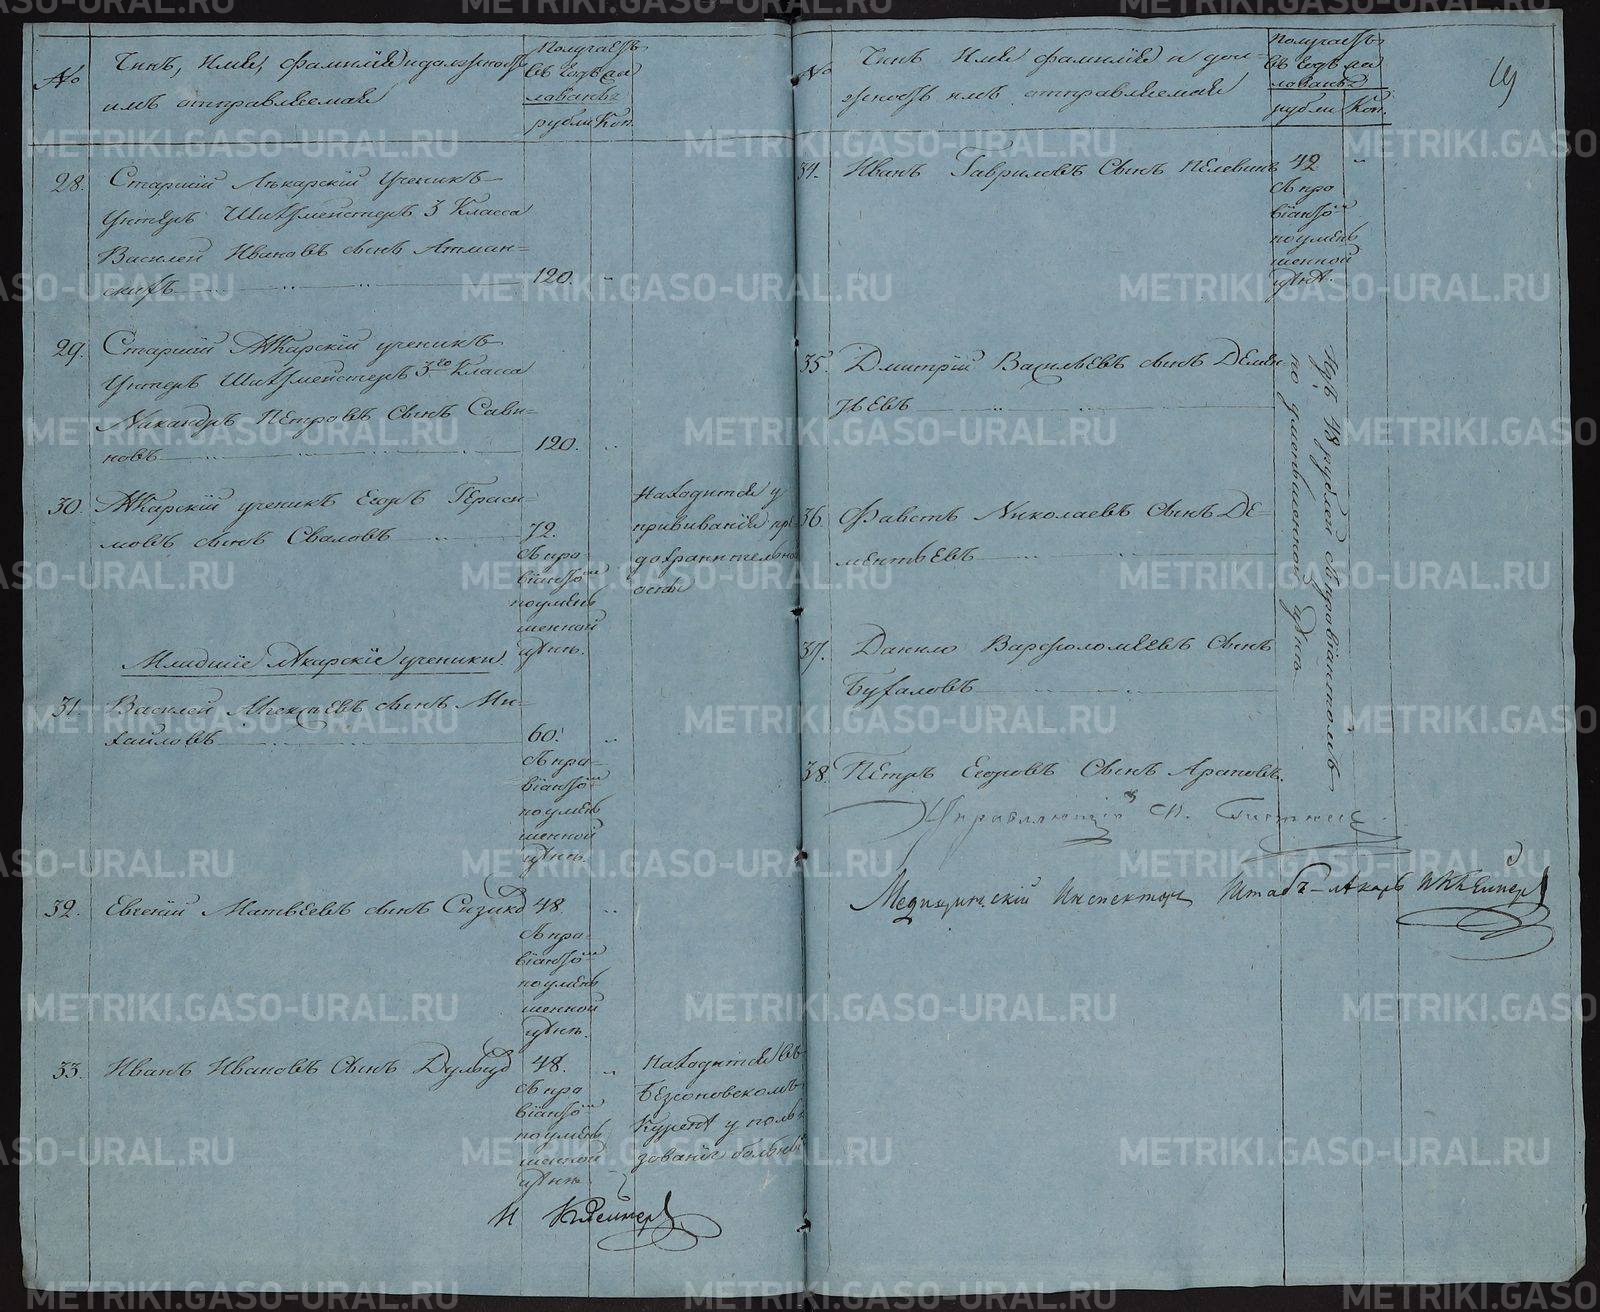 №
Чинъ, Имя, фамилія и должность
имъ отправляемая
Получаетъ
въ Годъ жа
лованья
рубли Коп.
28. Старшій Лѣкарскій Ученикъ
Унтеръ Шихтмейстеръ 3 Класса
Василей Ивановъ сынъ Атман-
скихъ 120. ..
29. Старшій Лѣкарскій ученикъ
Унтеръ Шихтмейстеръ 3го Класса
Никандръ Петровъ Сынъ Сави-
новъ 120. ..
30. Лѣкарскій ученикъ Егоръ Гераси-
мовъ сынъ Сваловъ 72.
съ про-
віантомъ
по умень
шенной
цѣнѣ.
Находится у
прививанія пре
дохранительной
оспы
Младшіе лѣкарскіе ученики.
31. Василей Алексѣевъ сынъ Ми-
хайловъ 60. ..
съ про-
віантомъ
по умень
шенной
цѣнѣ.
32. Евгеній Матвѣевъ сынъ 48. ..
съ про-
віантомъ
по умень
шенной
цѣнѣ.
33. Иванъ Ивановъ Сынъ 48. ..
съ про
віантомъ
по умень
шенной
цѣнѣ.
Находится въ
Безсоновскомъ
Куренѣ у поль
зованія больныхъ
И Клейнеръ
19
№
Чинъ Имя фамилія и дол-
жность имъ отправляемая
Получаетъ
въ Годъ жа
лованья
рубли Коп.
34. Иванъ Гавриловъ Сынъ Пелевинъ 42 ..
съ про
віантомъ
по умень
шенной
цѣнѣ.
35. Дмитрій Васильевъ сынъ Демен
тьевъ
36. Фавстъ Николаевъ Сынъ Де-
ментьевъ
37. Данило Варфоломеевъ Сынъ
Бухаловъ
38. Петръ Егоровъ Сынъ Араповъ.
48 рублей съ провіантомъ
по уменьшенной цѣнѣ
Управляющій
Медицинскій Инспекторъ Штабъ-лѣкарь И Клейнеръ
METRIKI.GASO-URAL.RU